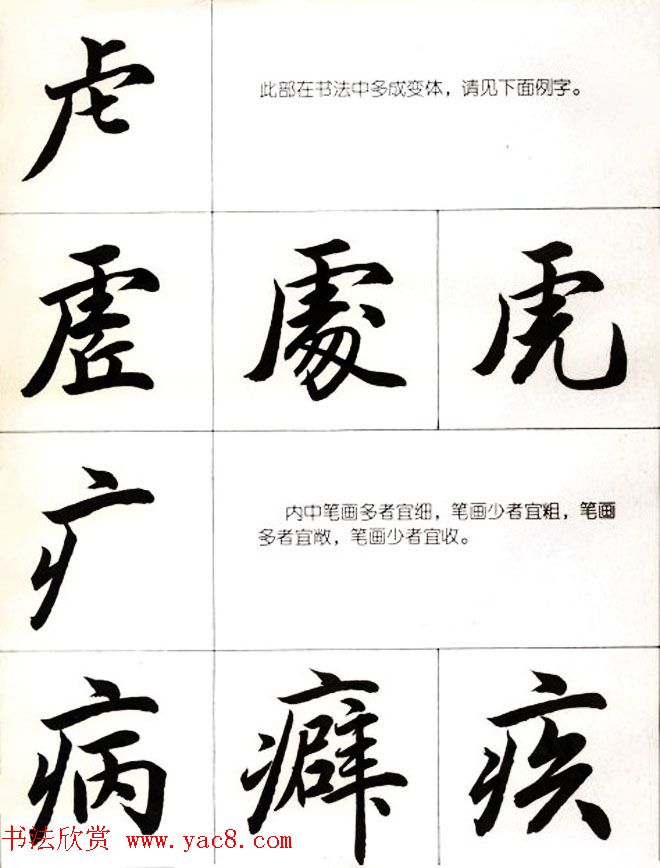 虍
此部在书法中多成变体，请见下面例字。
虚 處 虎
疒
内中笔画多者宜细，笔画少者宜粗，笔画
多者宜敞，笔画少者宜收。
病 癖 疾
书法欣赏 www.yac8.com